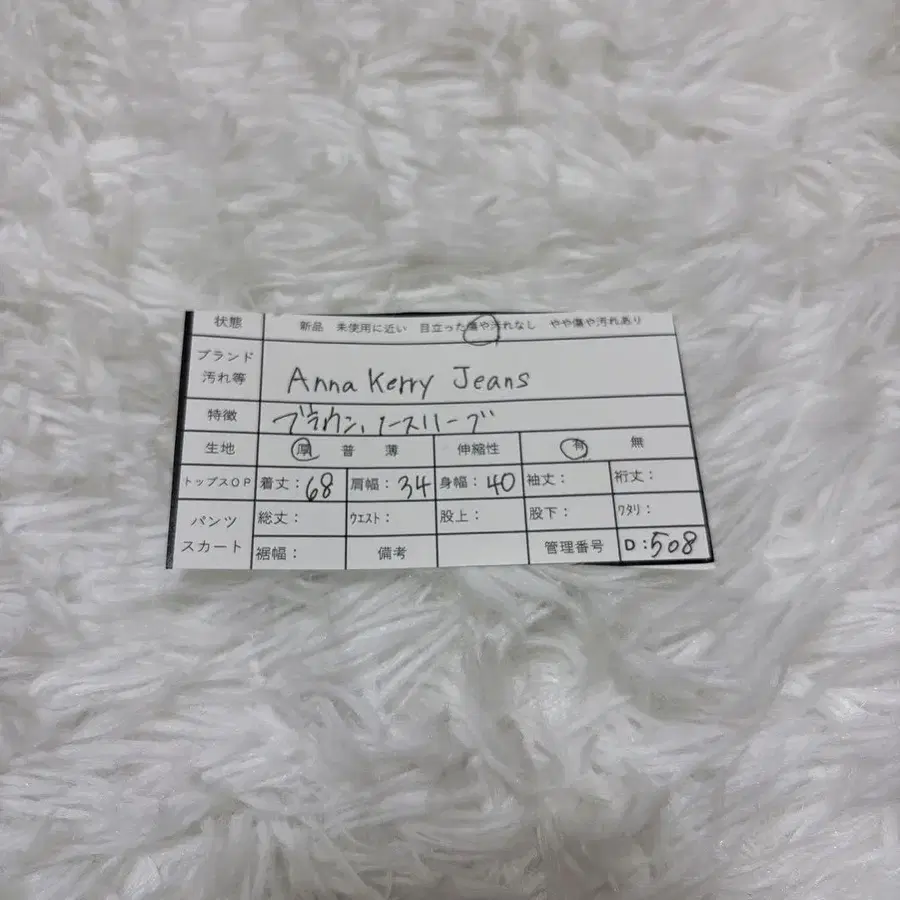 状態 新品 未使用に近い 目立った傷や汚れなし やや傷や汚れあり
ブランド
汚れ等 Anna Kerry Jeans
特徴 ブラウン、ノースリーブ
生地 厚 普 薄 伸縮性 有 無
トップスOP 着丈:68 肩幅:34 身幅:40 袖丈: 裄丈:
パンツ 総丈: ウエスト: 股上: 股下: ワタリ:
スカート 裾幅: 備考 管理番号 D:508